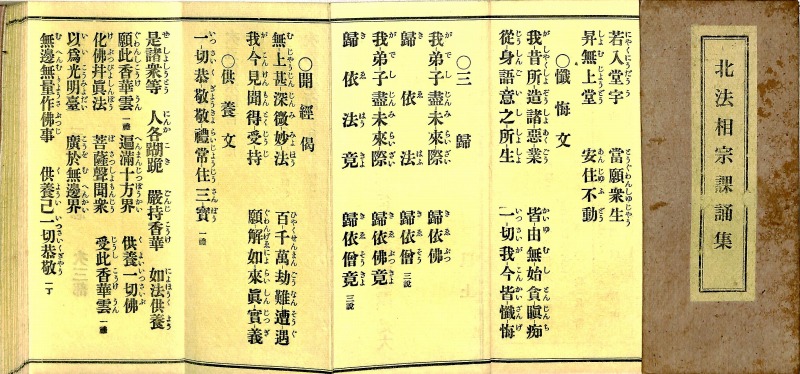 北法相宗課誦集
若入堂宇　當願衆生
昇無上堂　安住不動
○懺悔文
我昔所造諸惡業　皆由無始貪瞋痴
從身語意之所生　一切我今皆懺悔
○三歸
我弟子盡未來際　歸依佛
歸依法　歸依僧 三說
我弟子盡未來際　歸依佛竟
歸依法竟　歸依僧竟 三說
○開經偈
無上甚深微妙法　百千萬劫難遭遇
我今見聞得受持　願解如來眞實義
○供養文
一切恭敬敬禮常住三寶 一禮
是諸衆等　人各𨂜跪　嚴持香華　如法供養
願此香華雲 一禮　遍滿十方界　供養一切佛
化佛幷眞法　菩薩聲聞衆　受此香華雲 一禮
以爲光明臺　廣於無邊界
無邊無量作佛事　供養已一切恭敬 一丁